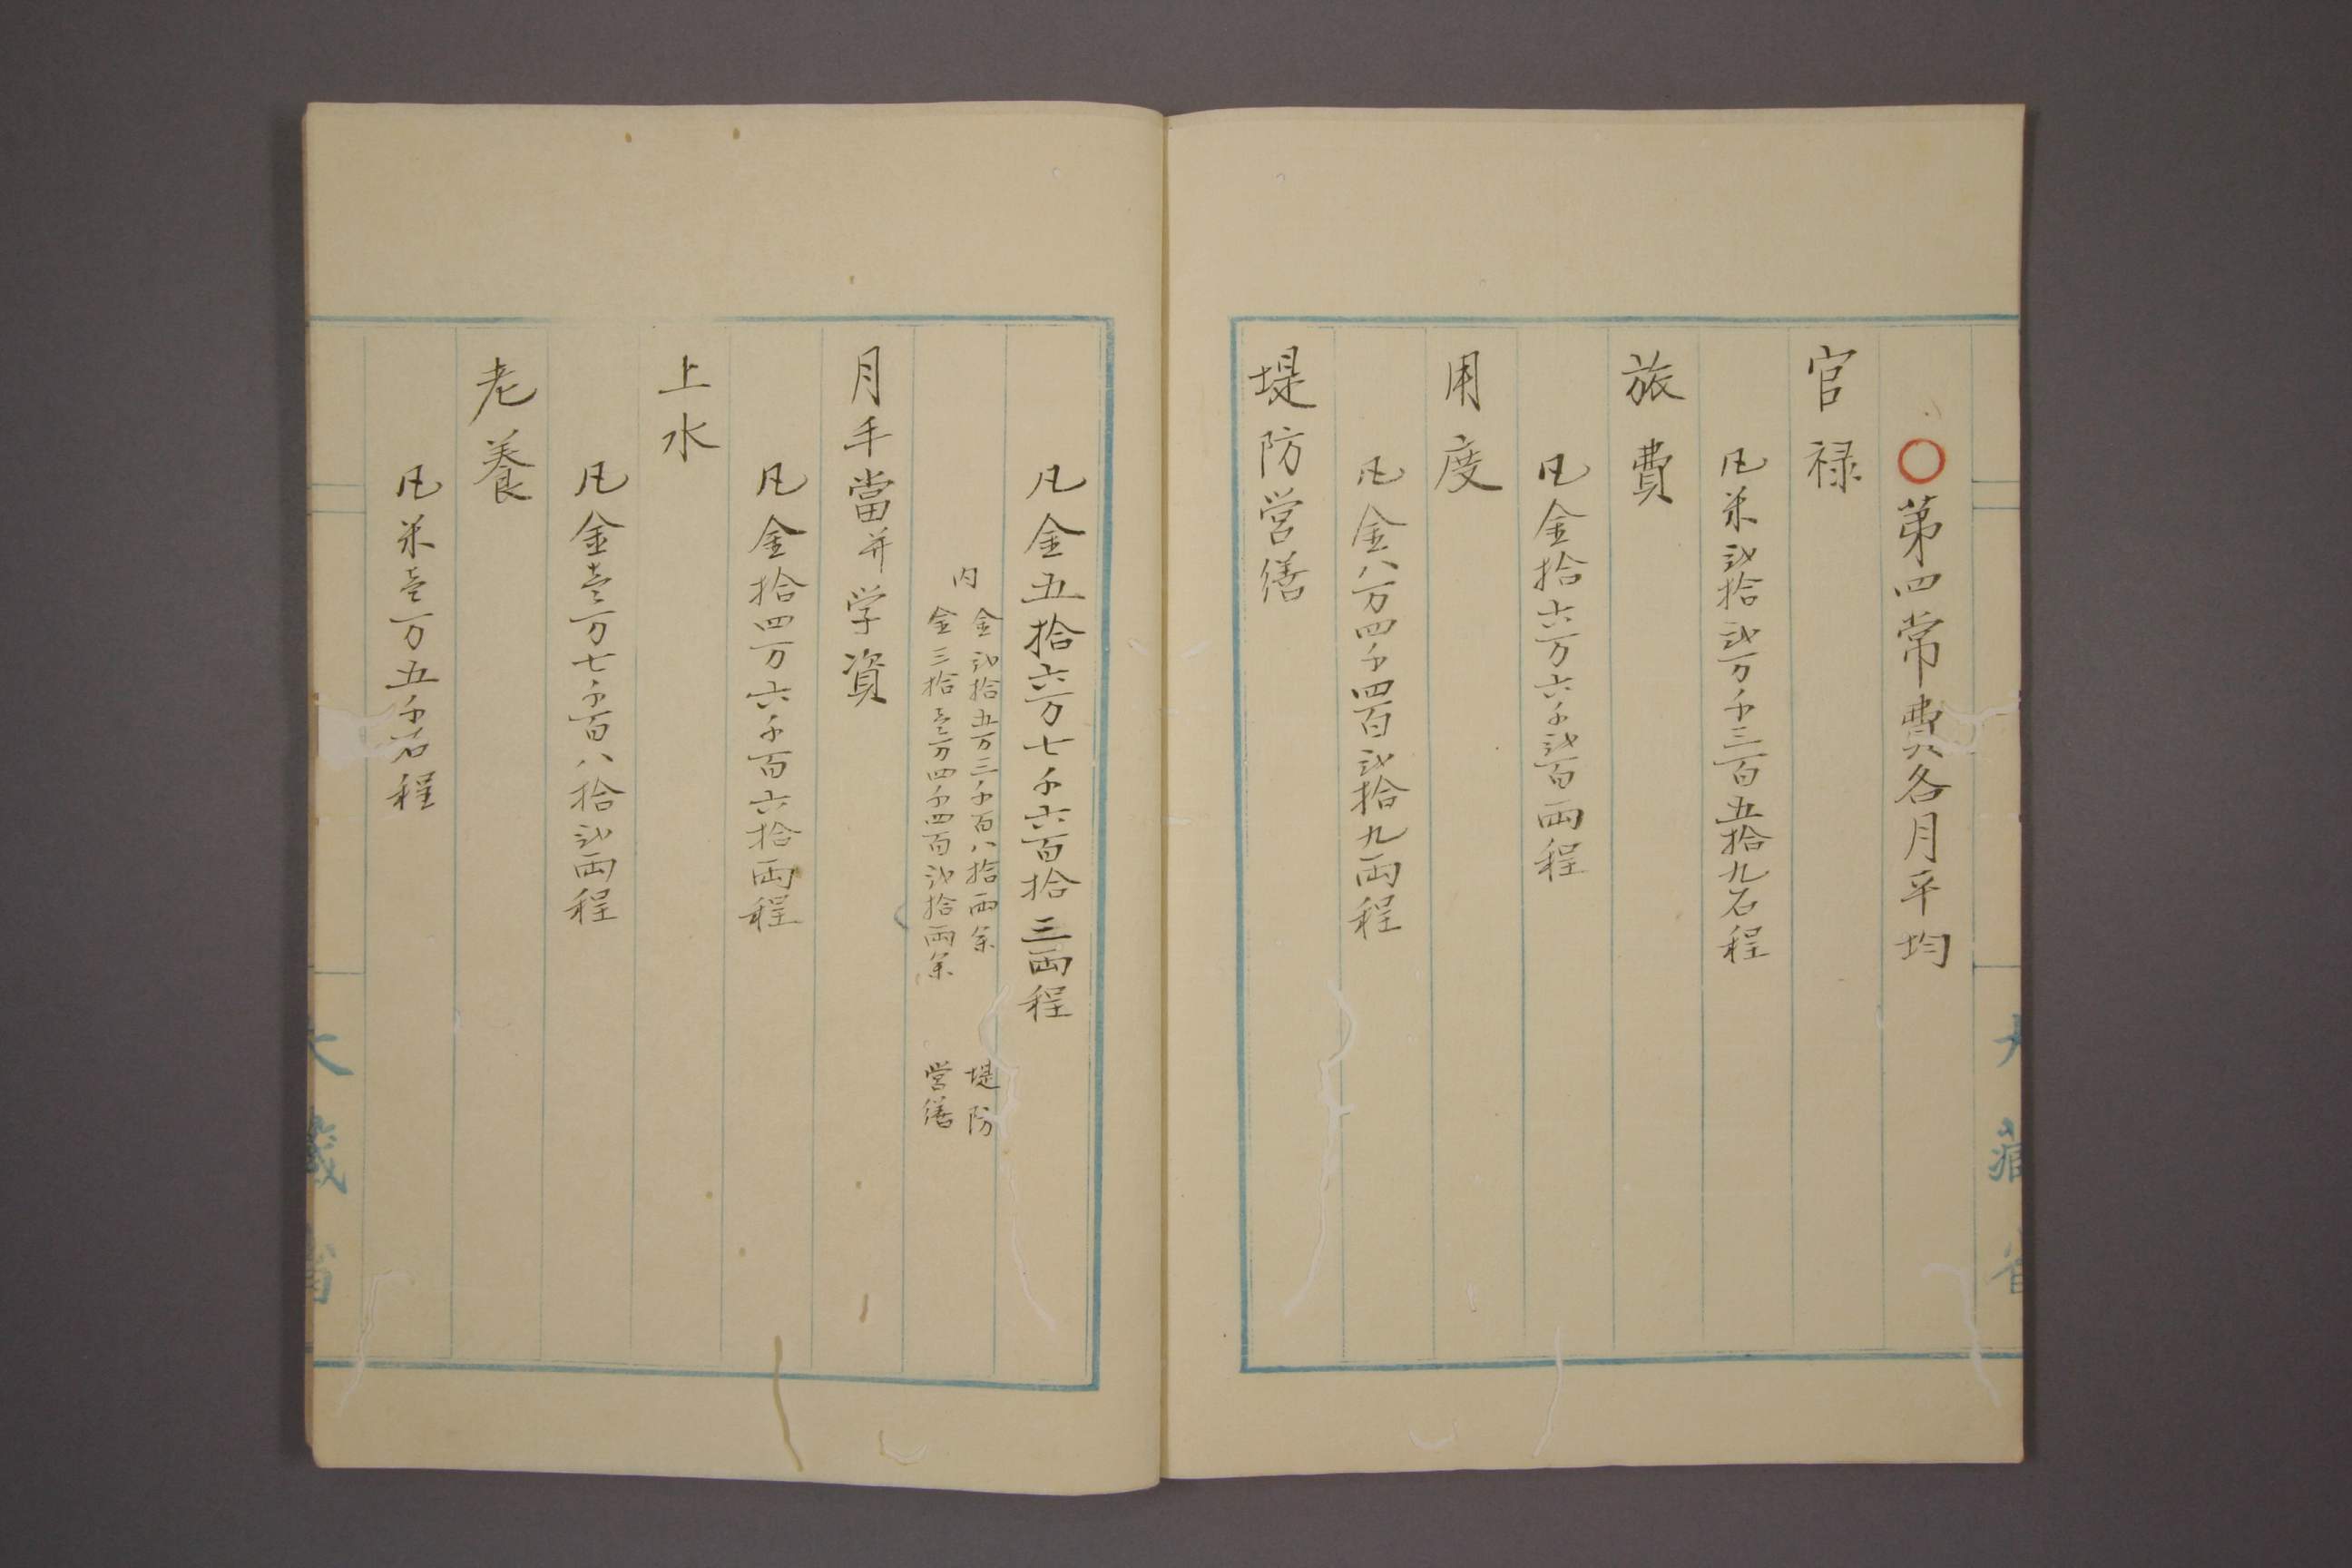 〇第四常費各月平均
官禄
凡米弐拾弐万千三百五拾九石程
旅費
凡金拾六万六千弐百両程
用度
凡金八万四千四百弐拾九両程
堤防営繕
大蔵省
凡金五拾六万七千六百拾三両程
内
金弐拾五万三千百八拾両余 堤防
金三拾壱万四千四百弐拾両余 営繕
月手當并学資
凡金拾四万六千百六拾両程
上水
凡金壱万七千百八拾弐両程
老養
凡米壱万五千石程
大蔵省